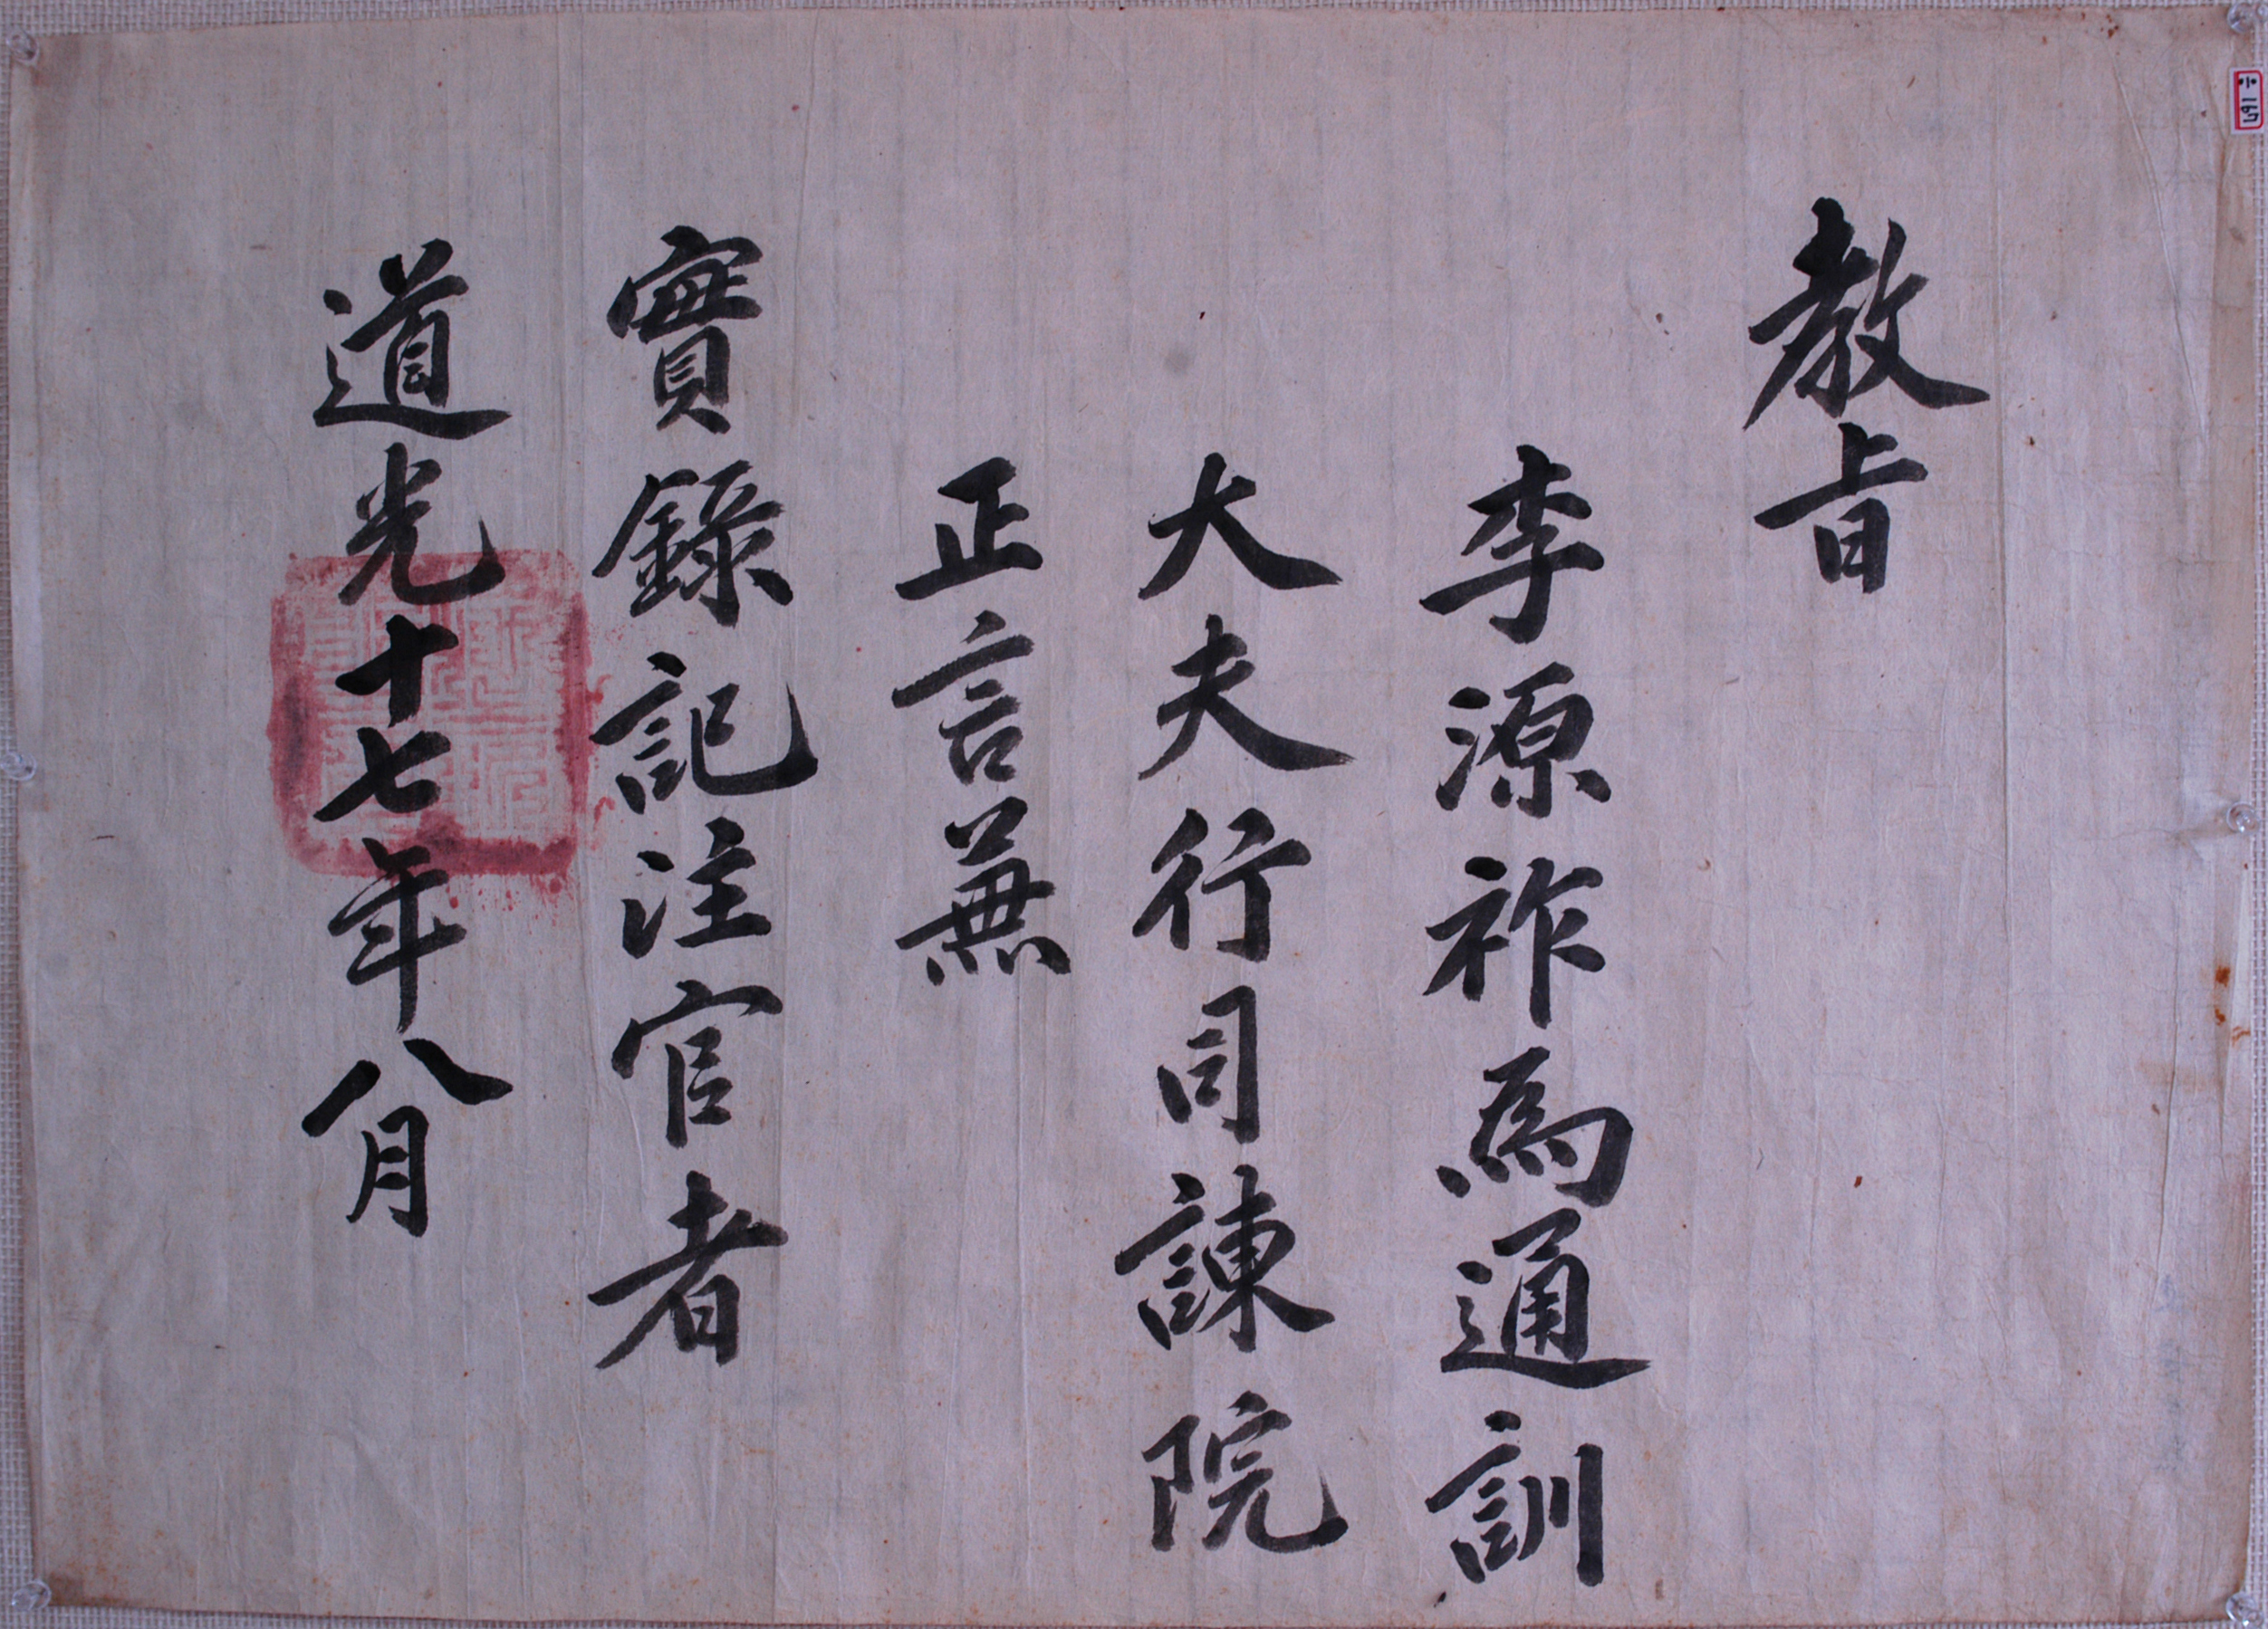 教旨
李源祚爲通訓
大夫行司諫院
正言兼
實錄記注官者
道光十七年八月
167